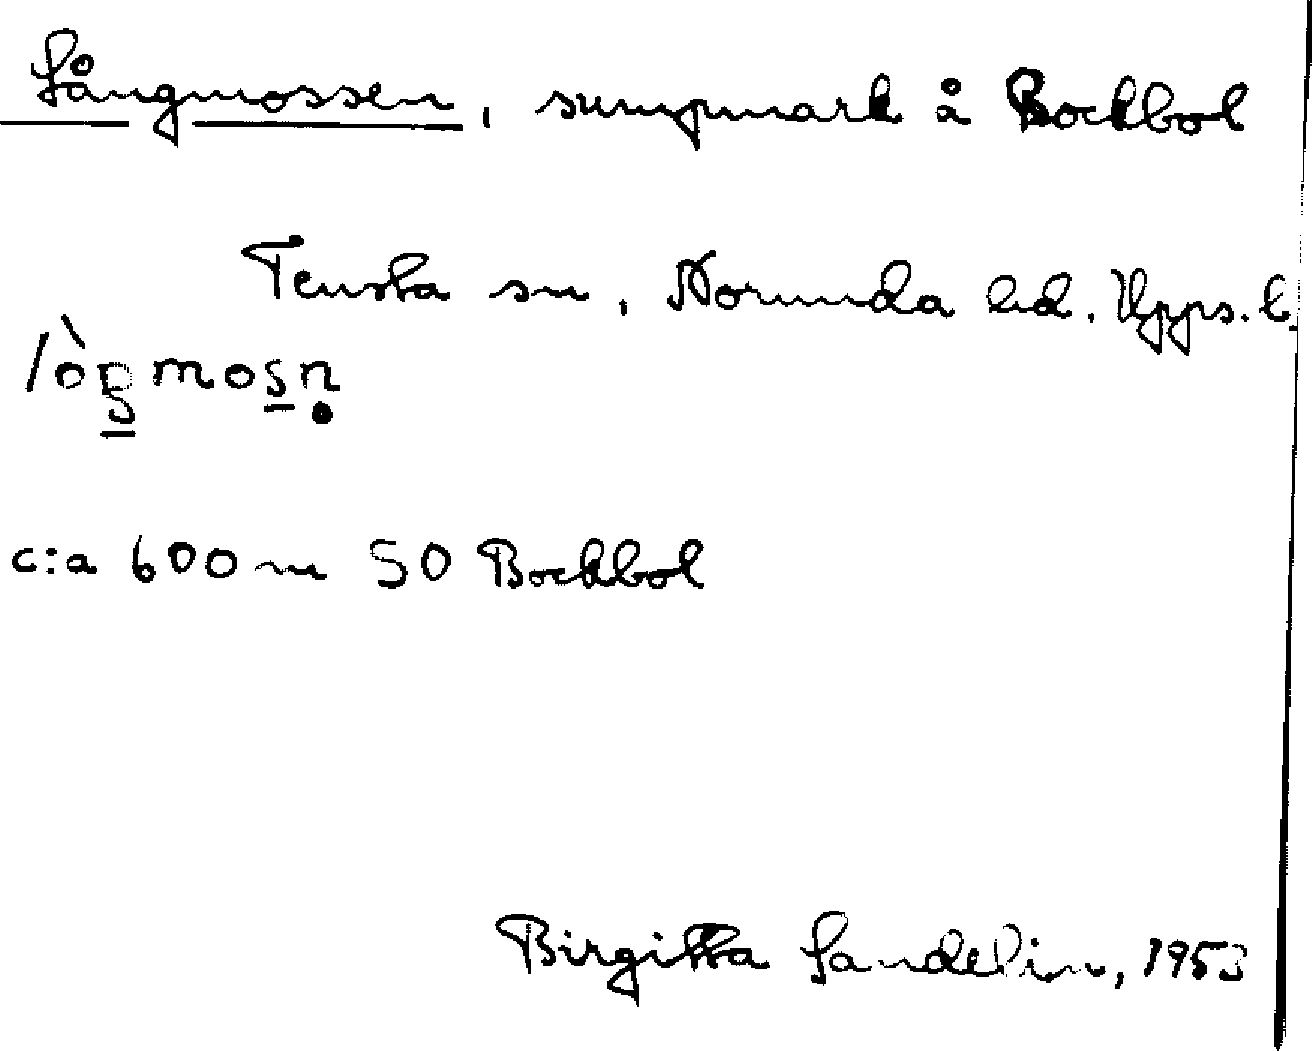 Långmossen, sumpmark å Bockbol
Tensta sn, Norunda hd. Upps. l.
lòŋmosn̥
c:a 600 m SO Bockbol
Birgitta Sandelin, 1953